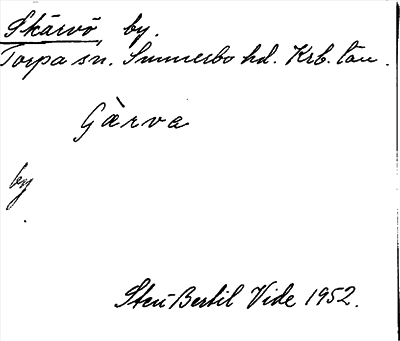 Skärvö by.
Torpa sn. Sunnerbo hd. Krb. län.
Gærva
by
Sten Bertil Vide 1952.